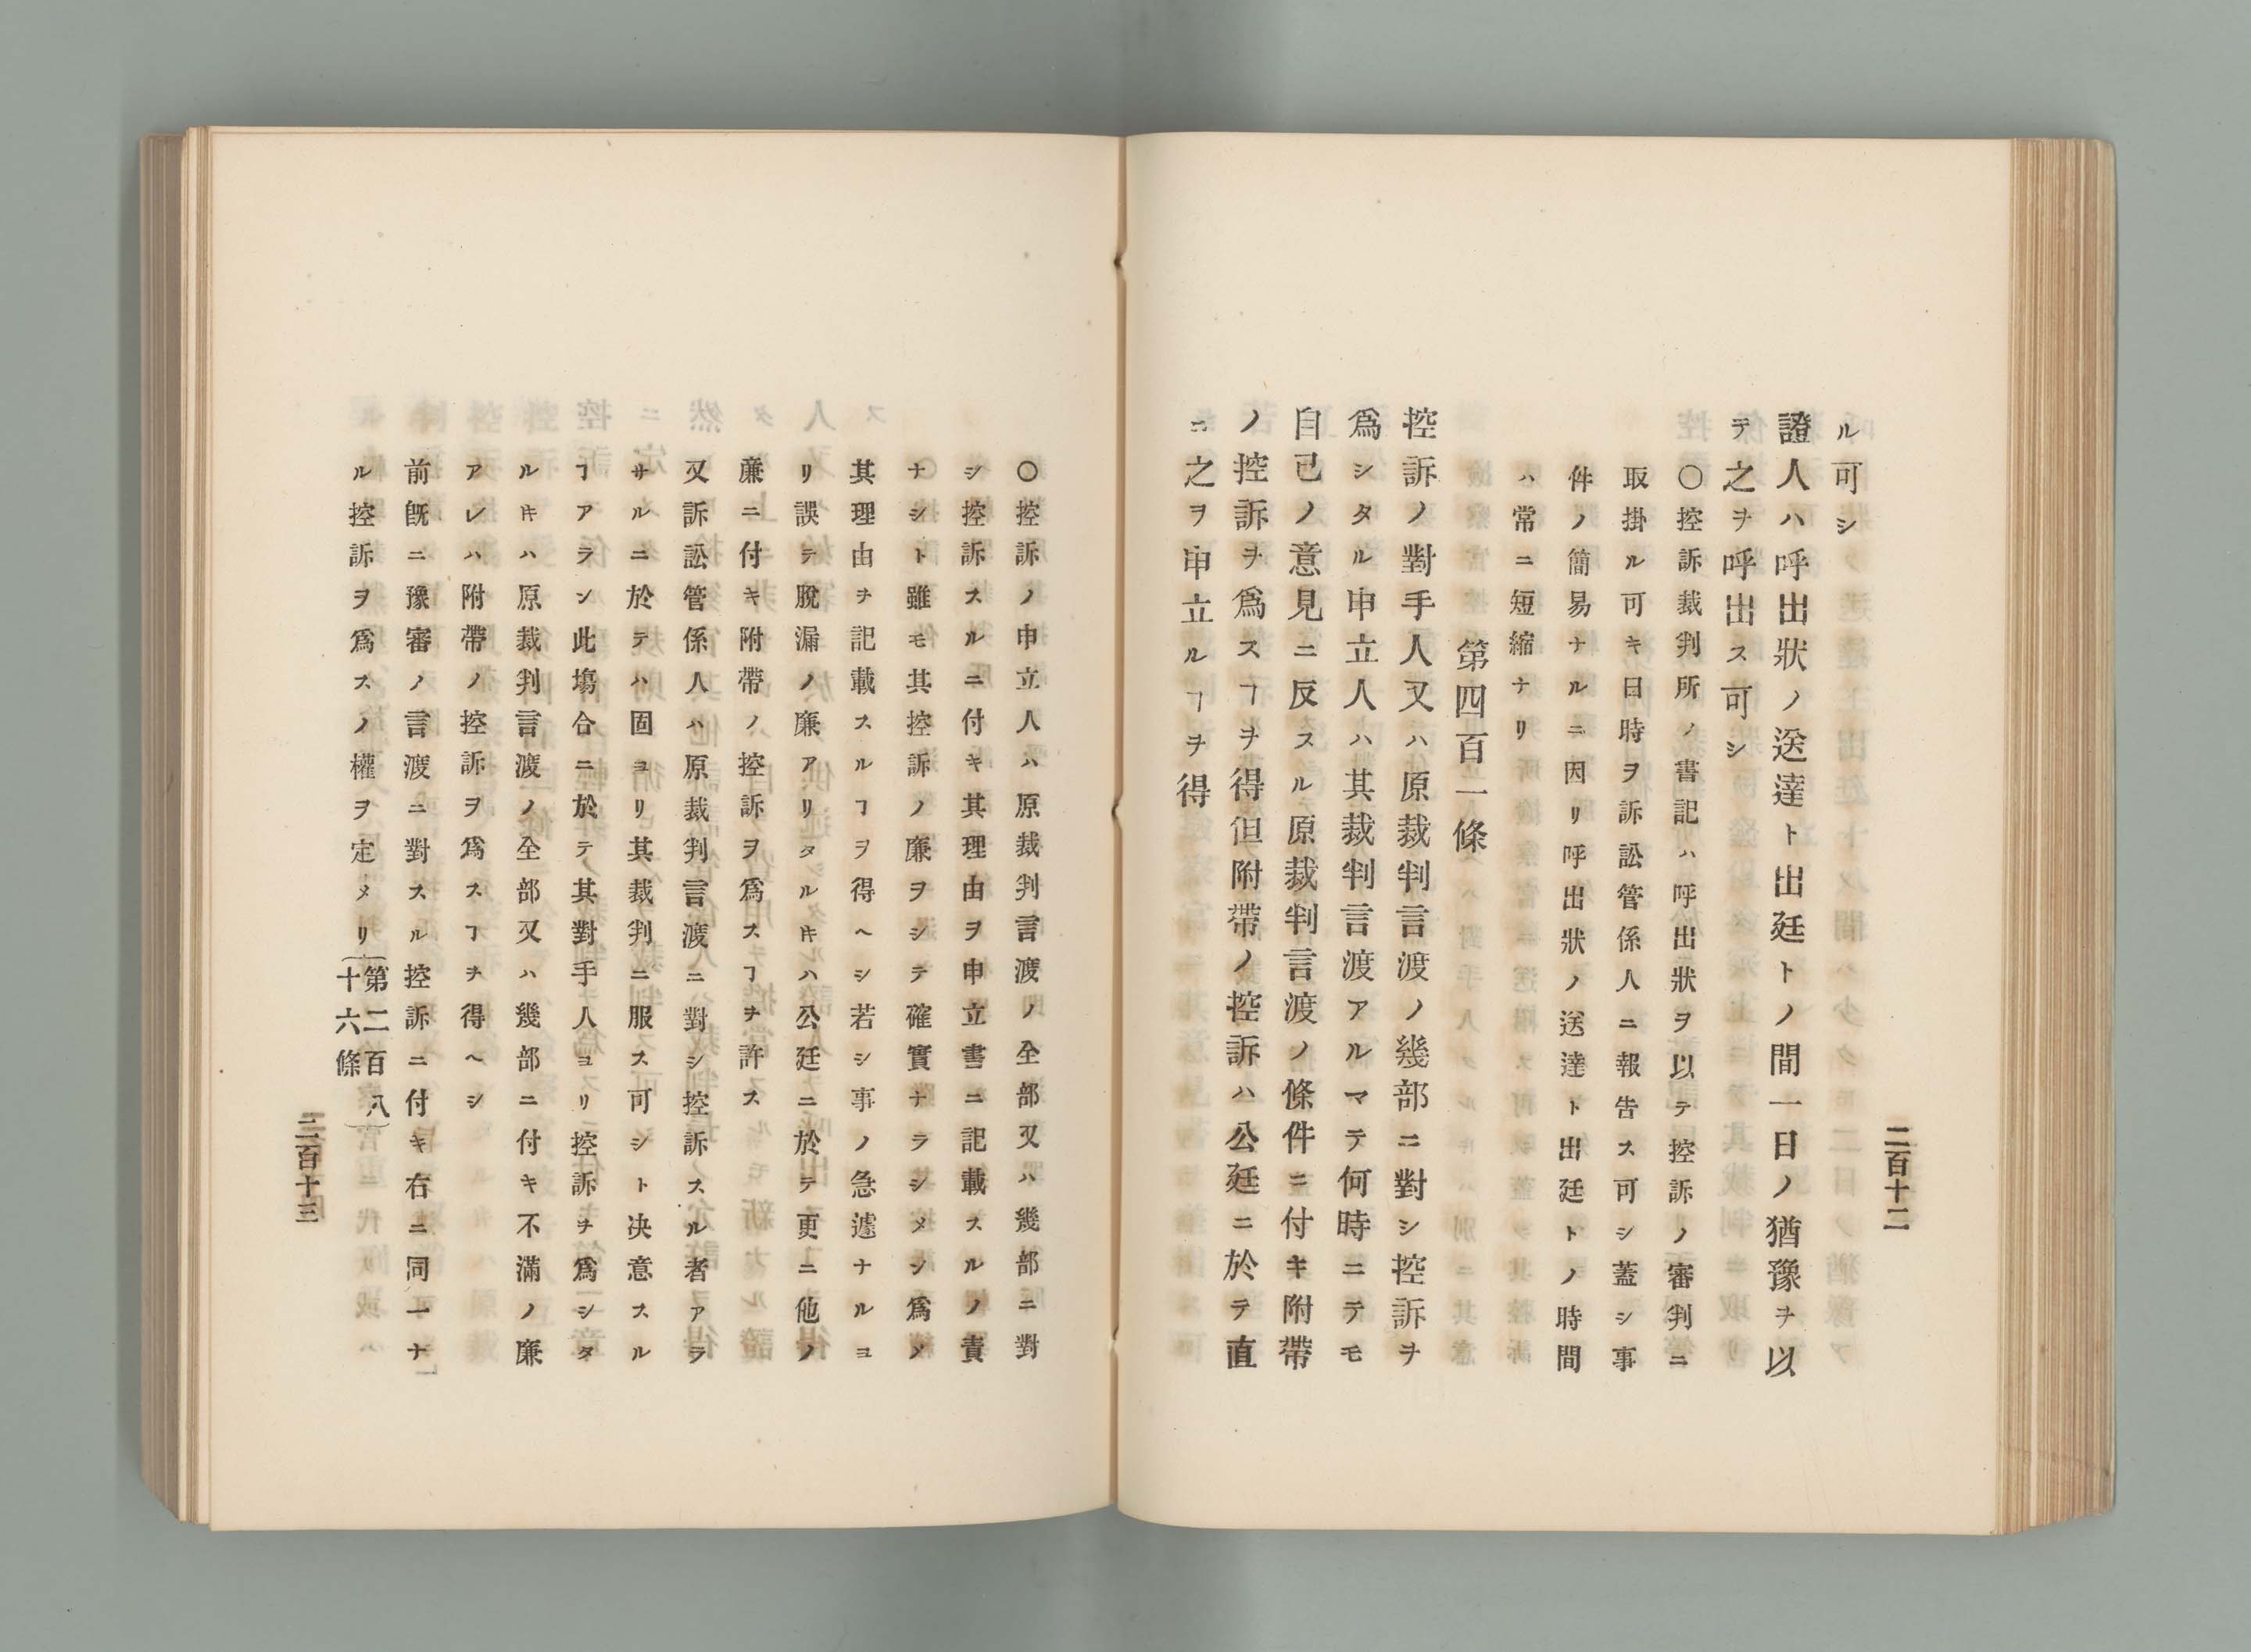 ル可シ
證人ハ呼出狀ノ送達ト出廷トノ間一日ノ猶豫ヲ以
テ之ヲ呼出ス可シ
○控訴裁判所ノ書記ハ呼出狀ヲ以テ控訴ノ審判ニ
取掛ル可キ日時ヲ訴訟管係人ニ報告ス可シ蓋シ事
件ノ簡易ナルニ因リ呼出狀ノ送達ト出廷トノ時間
ハ常ニ短縮ナリ
第四百一條
控訴ノ對手人又ハ原裁判言渡ノ幾部ニ對シ控訴ヲ
爲シタル申立人ハ其裁判言渡アルマテ何時ニテモ
自己ノ意見ニ反スル原裁判言渡ノ條件ニ付キ附帶
ノ控訴ヲ爲スヿヲ得但附帶ノ控訴ハ公廷ニ於テ直
ニ之ヲ申立ルヿヲ得
二百十二
○控訴ノ申立人ハ原裁判言渡ノ全部又ハ幾部ニ對
シ控訴スルニ付キ其理由ヲ申立書ニ記載スルノ責
ナシト雖モ其控訴ノ廉ヲシテ確實ナラシメン爲メ
其理由ヲ記載スルヿヲ得ヘシ若シ事ノ急遽ナルヨ
リ誤テ脫漏ノ廉アリタルキハ公廷ニ於テ更ニ他ノ
廉ニ付キ附帶ノ控訴ヲ爲スヿヲ許ス
又訴訟管係人ハ原裁判言渡ニ對シ控訴スル者アラ
サルニ於テハ固ヨリ其裁判ニ服ス可シト决意スル
ヿアラン此塲合ニ於テ其對手人ヨリ控訴ヲ爲シタ
ルキハ原裁判言渡ノ全部又ハ幾部ニ付キ不滿ノ廉
アレハ附帶ノ控訴ヲ爲スヿヲ得ヘシ
前既ニ豫審ノ言渡ニ對スル控訴ニ付キ右ニ同一ナ
ル控訴ヲ爲スノ權ヲ定メリ(第二百八十六條)
二百十三